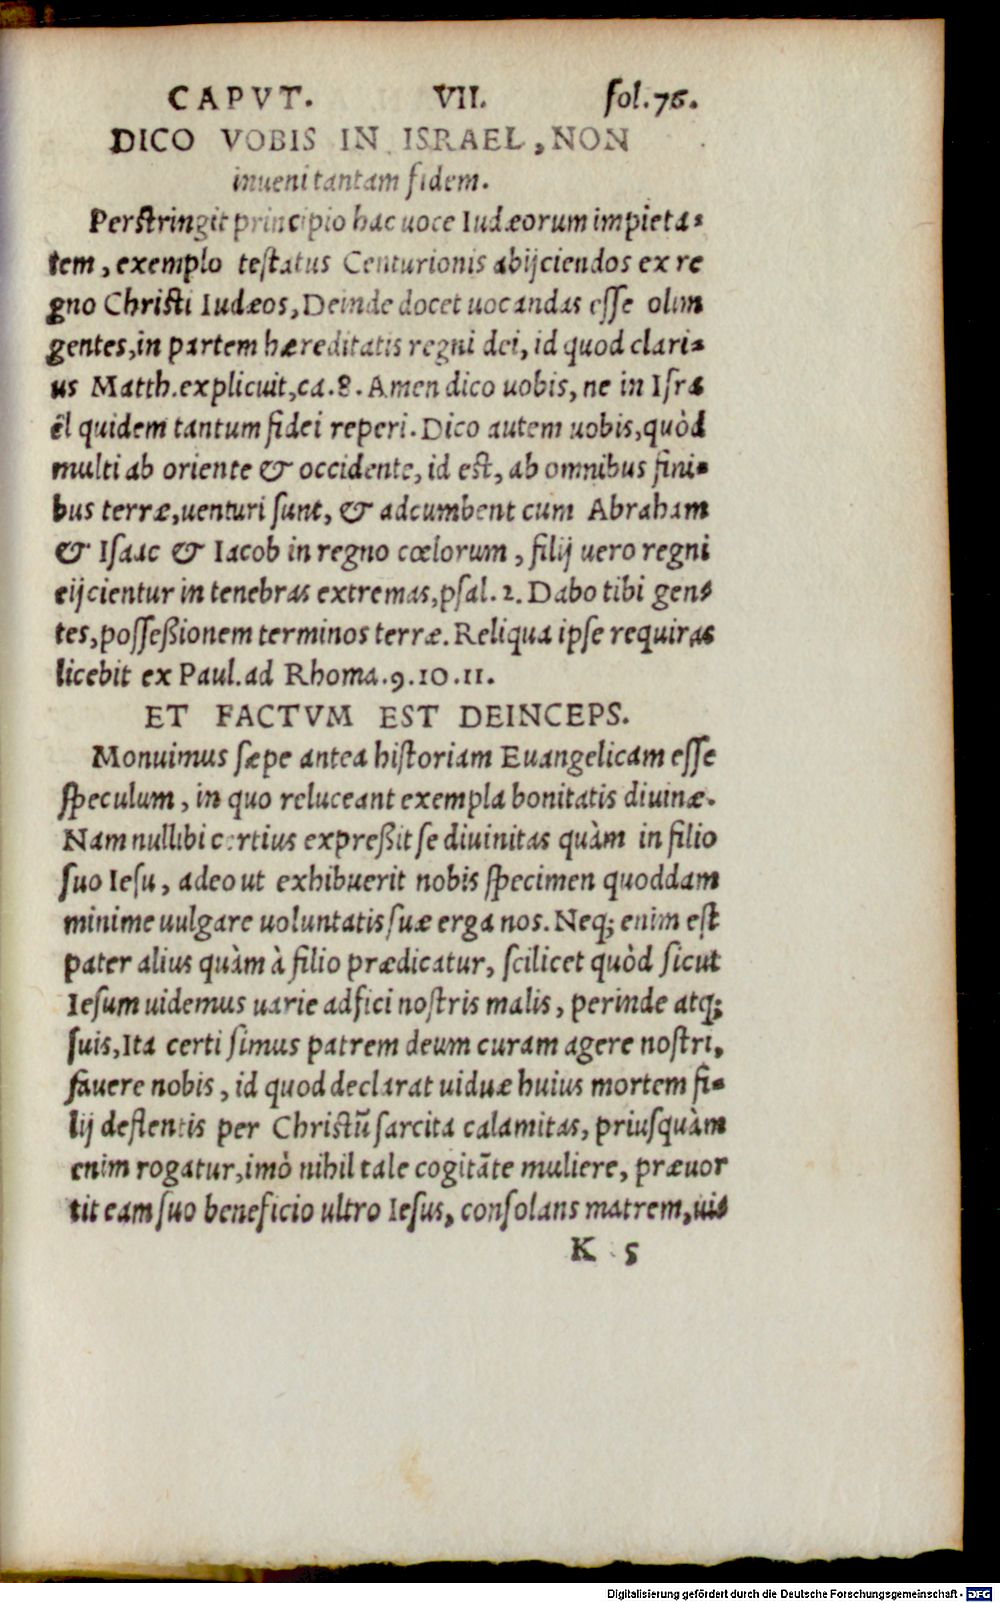 CAPVT. VII. fol. 76.
DICO VOBIS IN ISRAEL, NON
inueni tantam fidem.
Perstringit principio hac uoce Iudæorum impieta-
tem, exemplo testatus Centurionis abijciendos ex re
gno Christi Iudæos, Deinde docet uocandas esse olim
gentes, in partem hæreditatis regni dei, id quod clari-
us Matth. explicuit, ca. 8. Amen dico uobis, ne in Isra
ël quidem tantum fidei reperi. Dico autem uobis, quòd
multi ab oriente & occidente, id est, ab omnibus fini-
bus terræ, uenturi sunt, & adcumbent cum Abraham
& Isaac & Iacob in regno cœlorum, filij uero regni
eijcientur in tenebras extremas, psal. 2. Dabo tibi gen-
tes, posseßionem terminos terræ. Reliqua ipse requiras
licebit ex Paul. ad Rhoma. 9. 10. 11.
ET FACTVM EST DEINCEPS.
Monuimus sæpe antea historiam Euangelicam esse
speculum, in quo reluceant exempla bonitatis diuinæ.
Nam nullibi certius expreßit se diuinitas quàm in filio
suo Iesu, adeo ut exhibuerit nobis specimen quoddam
minime uulgare uoluntatis suæ erga nos. Neq; enim est
pater alius quàm à filio prædicatur, scilicet quòd sicut
Iesum uidemus uarie adfici nostris malis, perinde atq;
suis, Ita certi simus patrem deum curam agere nostri,
fauere nobis, id quod declarat uiduæ huius mortem fi-
lij deflentis per Christũ sarcita calamitas, priusquàm
enim rogatur, imò nihil tale cogitãte muliere, præuor
tit eam suo beneficio ultro Iesus, consolans matrem, uis
K 5
Digitalisierung gefördert durch die Deutsche Forschungsgemeinschaft - DFG